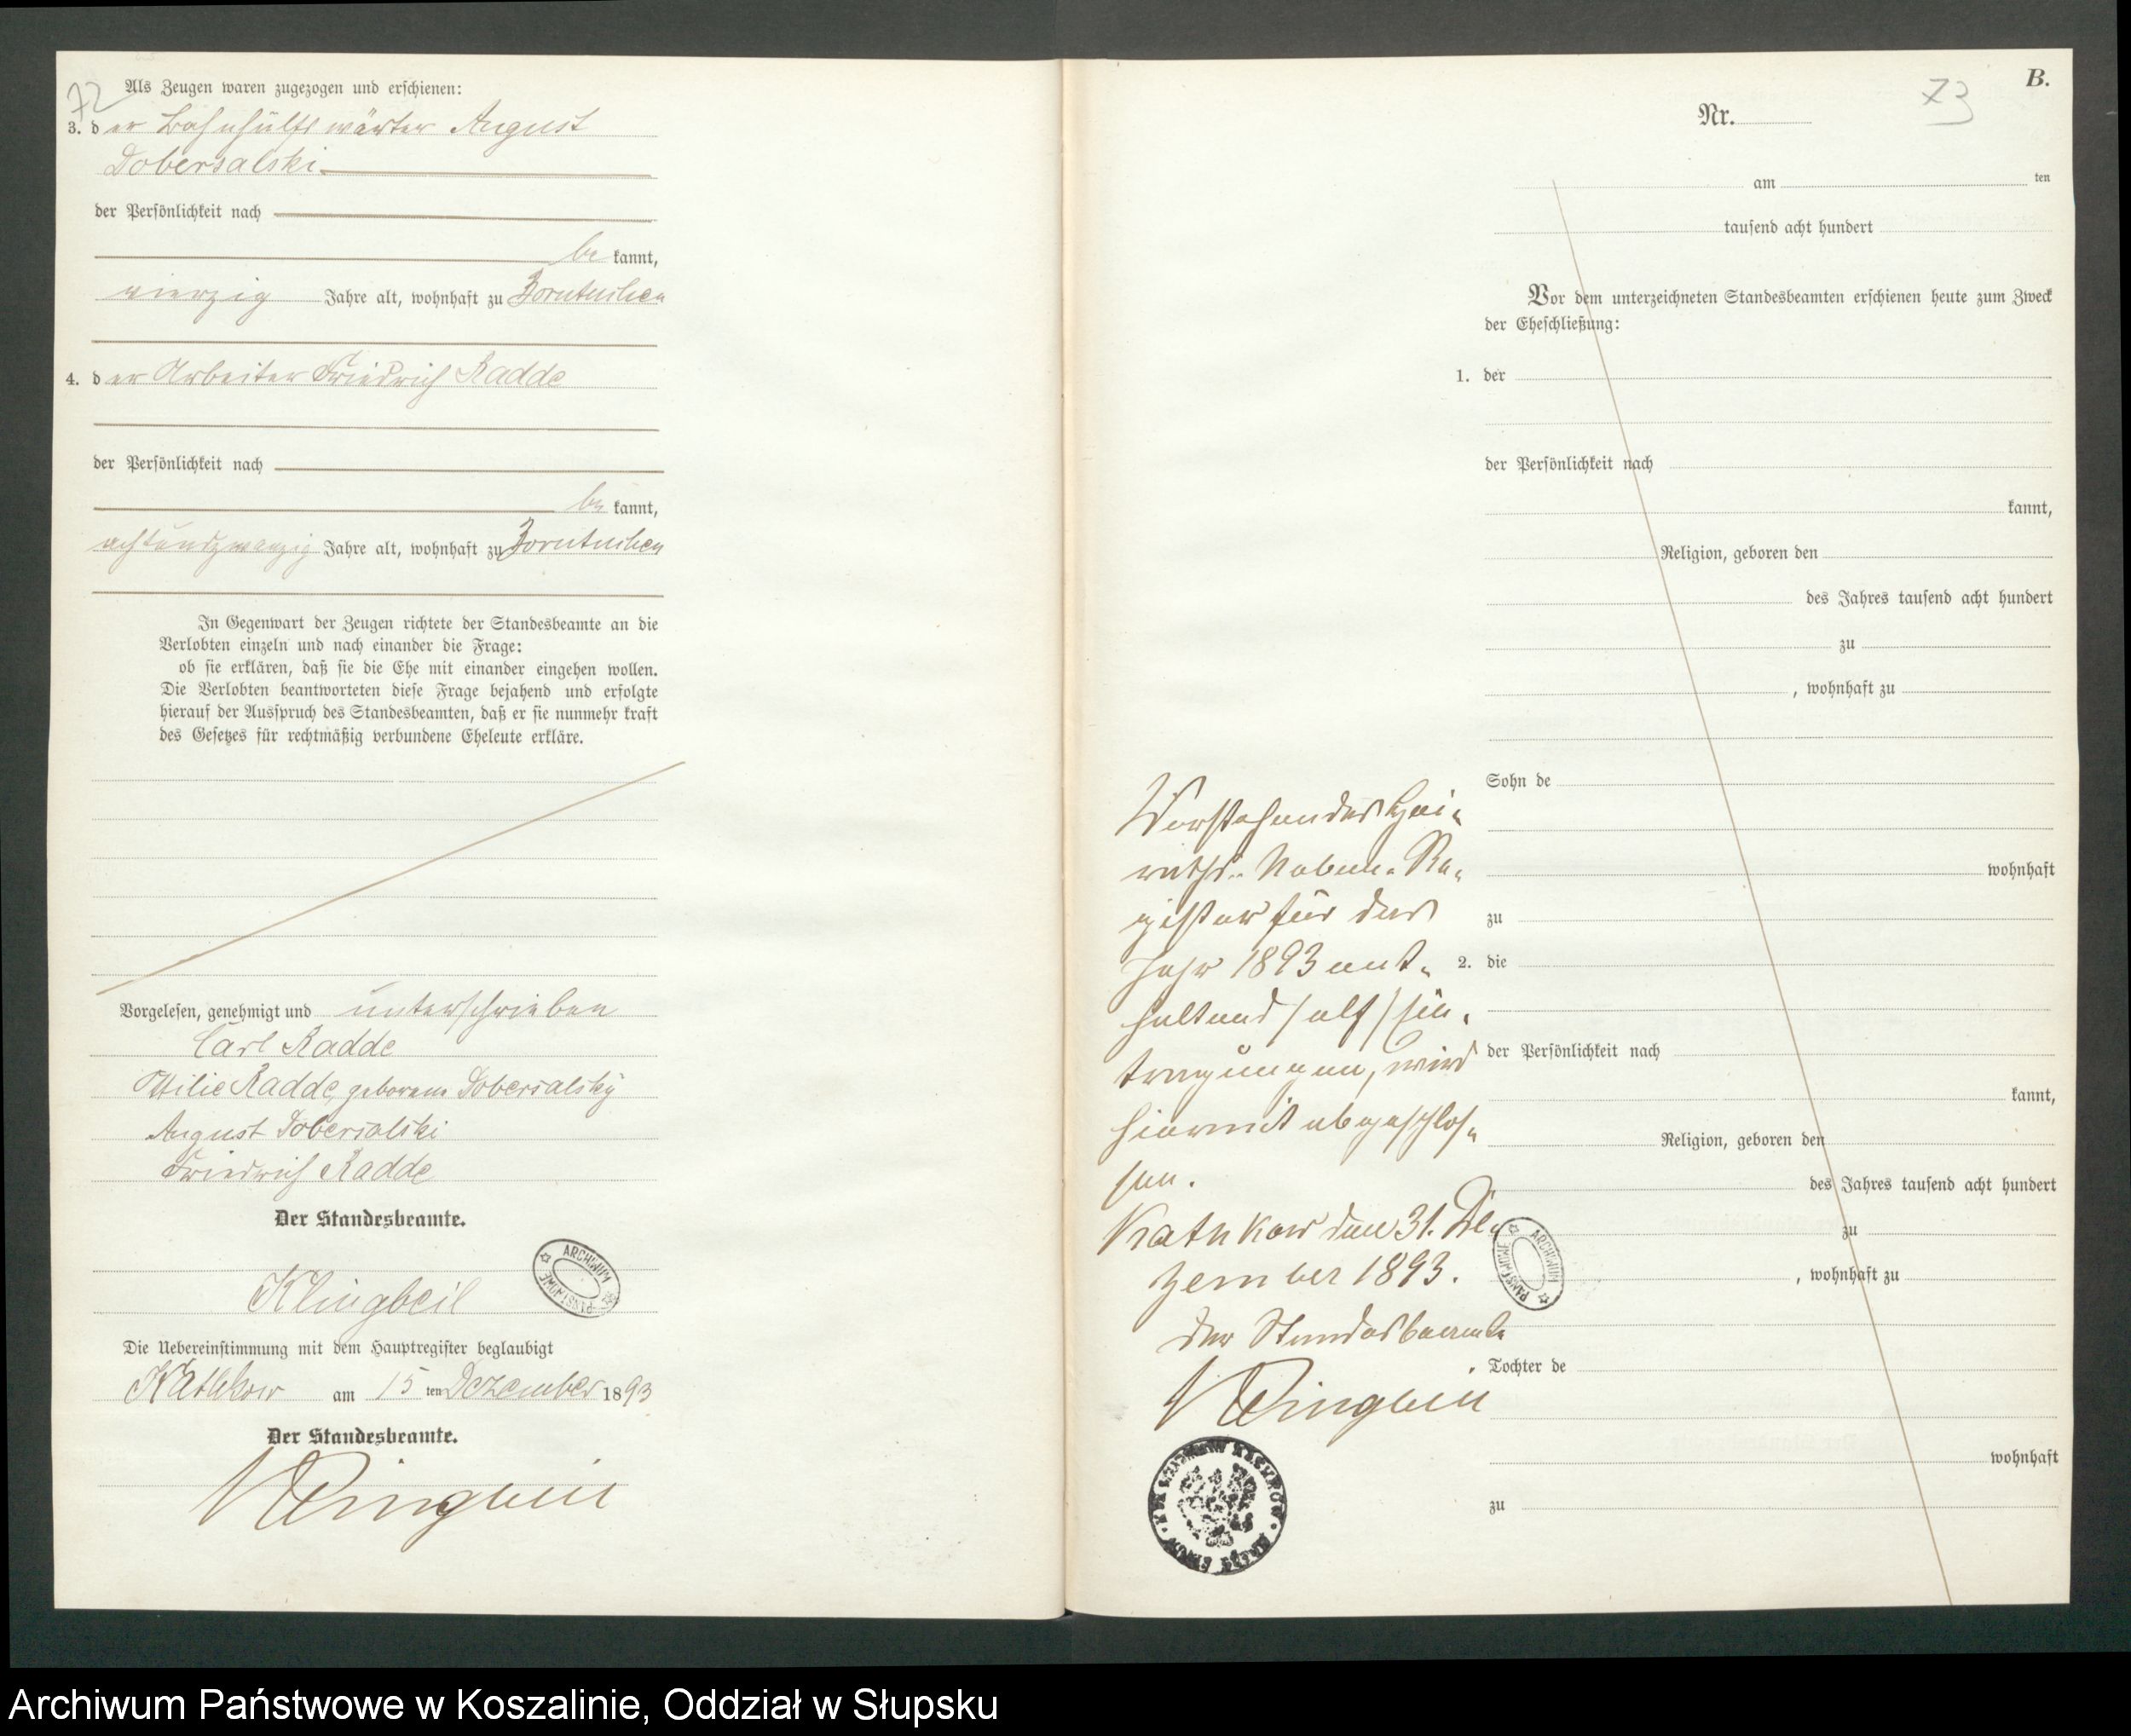 72
Als Zeugen waren zugezogen und erschienen:
3. der Bahnhülfswärter August
Dobersalski
der Persönlichkeit nach
be kannt,
vierzig Jahre alt, wohnhaft zu
4. der Arbeiter Friedrich Radde
der Persönlichkeit nach
be kannt,
achtundzwanzig Jahre alt, wohnhaft zu
In Gegenwart der Zeugen richtete der Standesbeamte an die
Verlobten einzeln und nach einander die Frage:
ob sie erklären, daß sie die Ehe mit einander eingehen wollen.
Die Verlobten beantworteten diese Frage bejahend und erfolgte
hierauf der Ausspruch des Standesbeamten, daß er sie nunmehr kraft
des Gesetzes für rechtmäßig verbundene Eheleute erkläre.
Vorgelesen, genehmigt und unterschrieben
Carl Radde
Ottilie Radde, geborene Dobersalsky
August Dobersalski
Friedrich Radde
Der Standesbeamte.
Klingbeil
ARCHIWUM PAŃSTWOWE
Die Uebereinstimmung mit dem Hauptregister beglaubigt
Kathkow am 15 ten Dezember 1893
Der Standesbeamte.
Klingbeil
B.
73
Nr.
am ten
tausend acht hundert
Vor dem unterzeichneten Standesbeamten erschienen heute zum Zweck
der Eheschließung:
1. der
der Persönlichkeit nach
kannt,
Religion, geboren den
des Jahres tausend acht hundert
zu
, wohnhaft zu
Sohn de
wohnhaft
zu
2. die
der Persönlichkeit nach
kannt,
Religion, geboren den
des Jahres tausend acht hundert
zu
, wohnhaft zu
Tochter de
wohnhaft
zu
Vorstehendes Hei-
raths-Neben-Re-
gister für das
Jahr 1893 ent-
haltend /elf/ Ein-
tragungen, wird
hiermit abgeschlos-
sen.
Kathkow den 31. De-
zember 1893.
Der Standesbeamte
Klingbeil
ARCHIWUM PAŃSTWOWE
Archiwum Państwowe w Koszalinie, Oddział w Słupsku